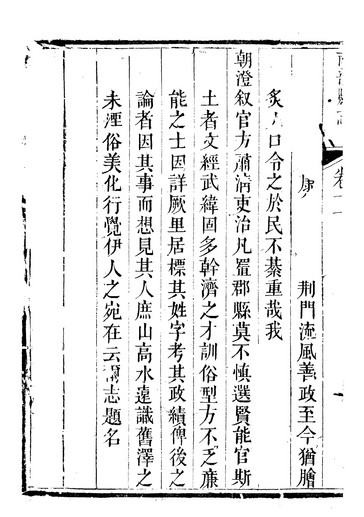 卷
荆門流風善政至今猶膾
炙人口令之於民不綦重哉我
朝澄叙官方肅清吏治凡置郡縣莫不慎選賢能官斯
土者文經武緯固多幹濟之才訓俗型方不乏廉
能之士因詳厥里居標其姓字考其政績俾後之
論者因其事而想見其人庶山高水遠識舊澤之
未湮俗美化行覺伊人之宛在云爾志題名